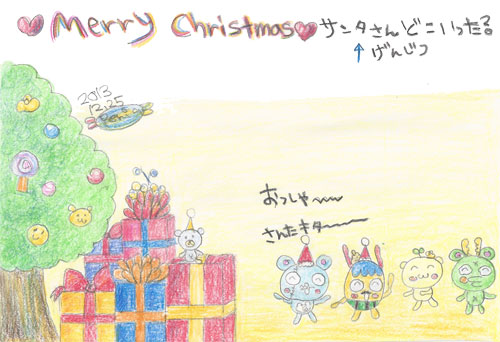 Merry Christmas サンタさんどこいった?
↑げんじつ
2013
12.25
おっしゃ〜〜
さんたキター〜〜